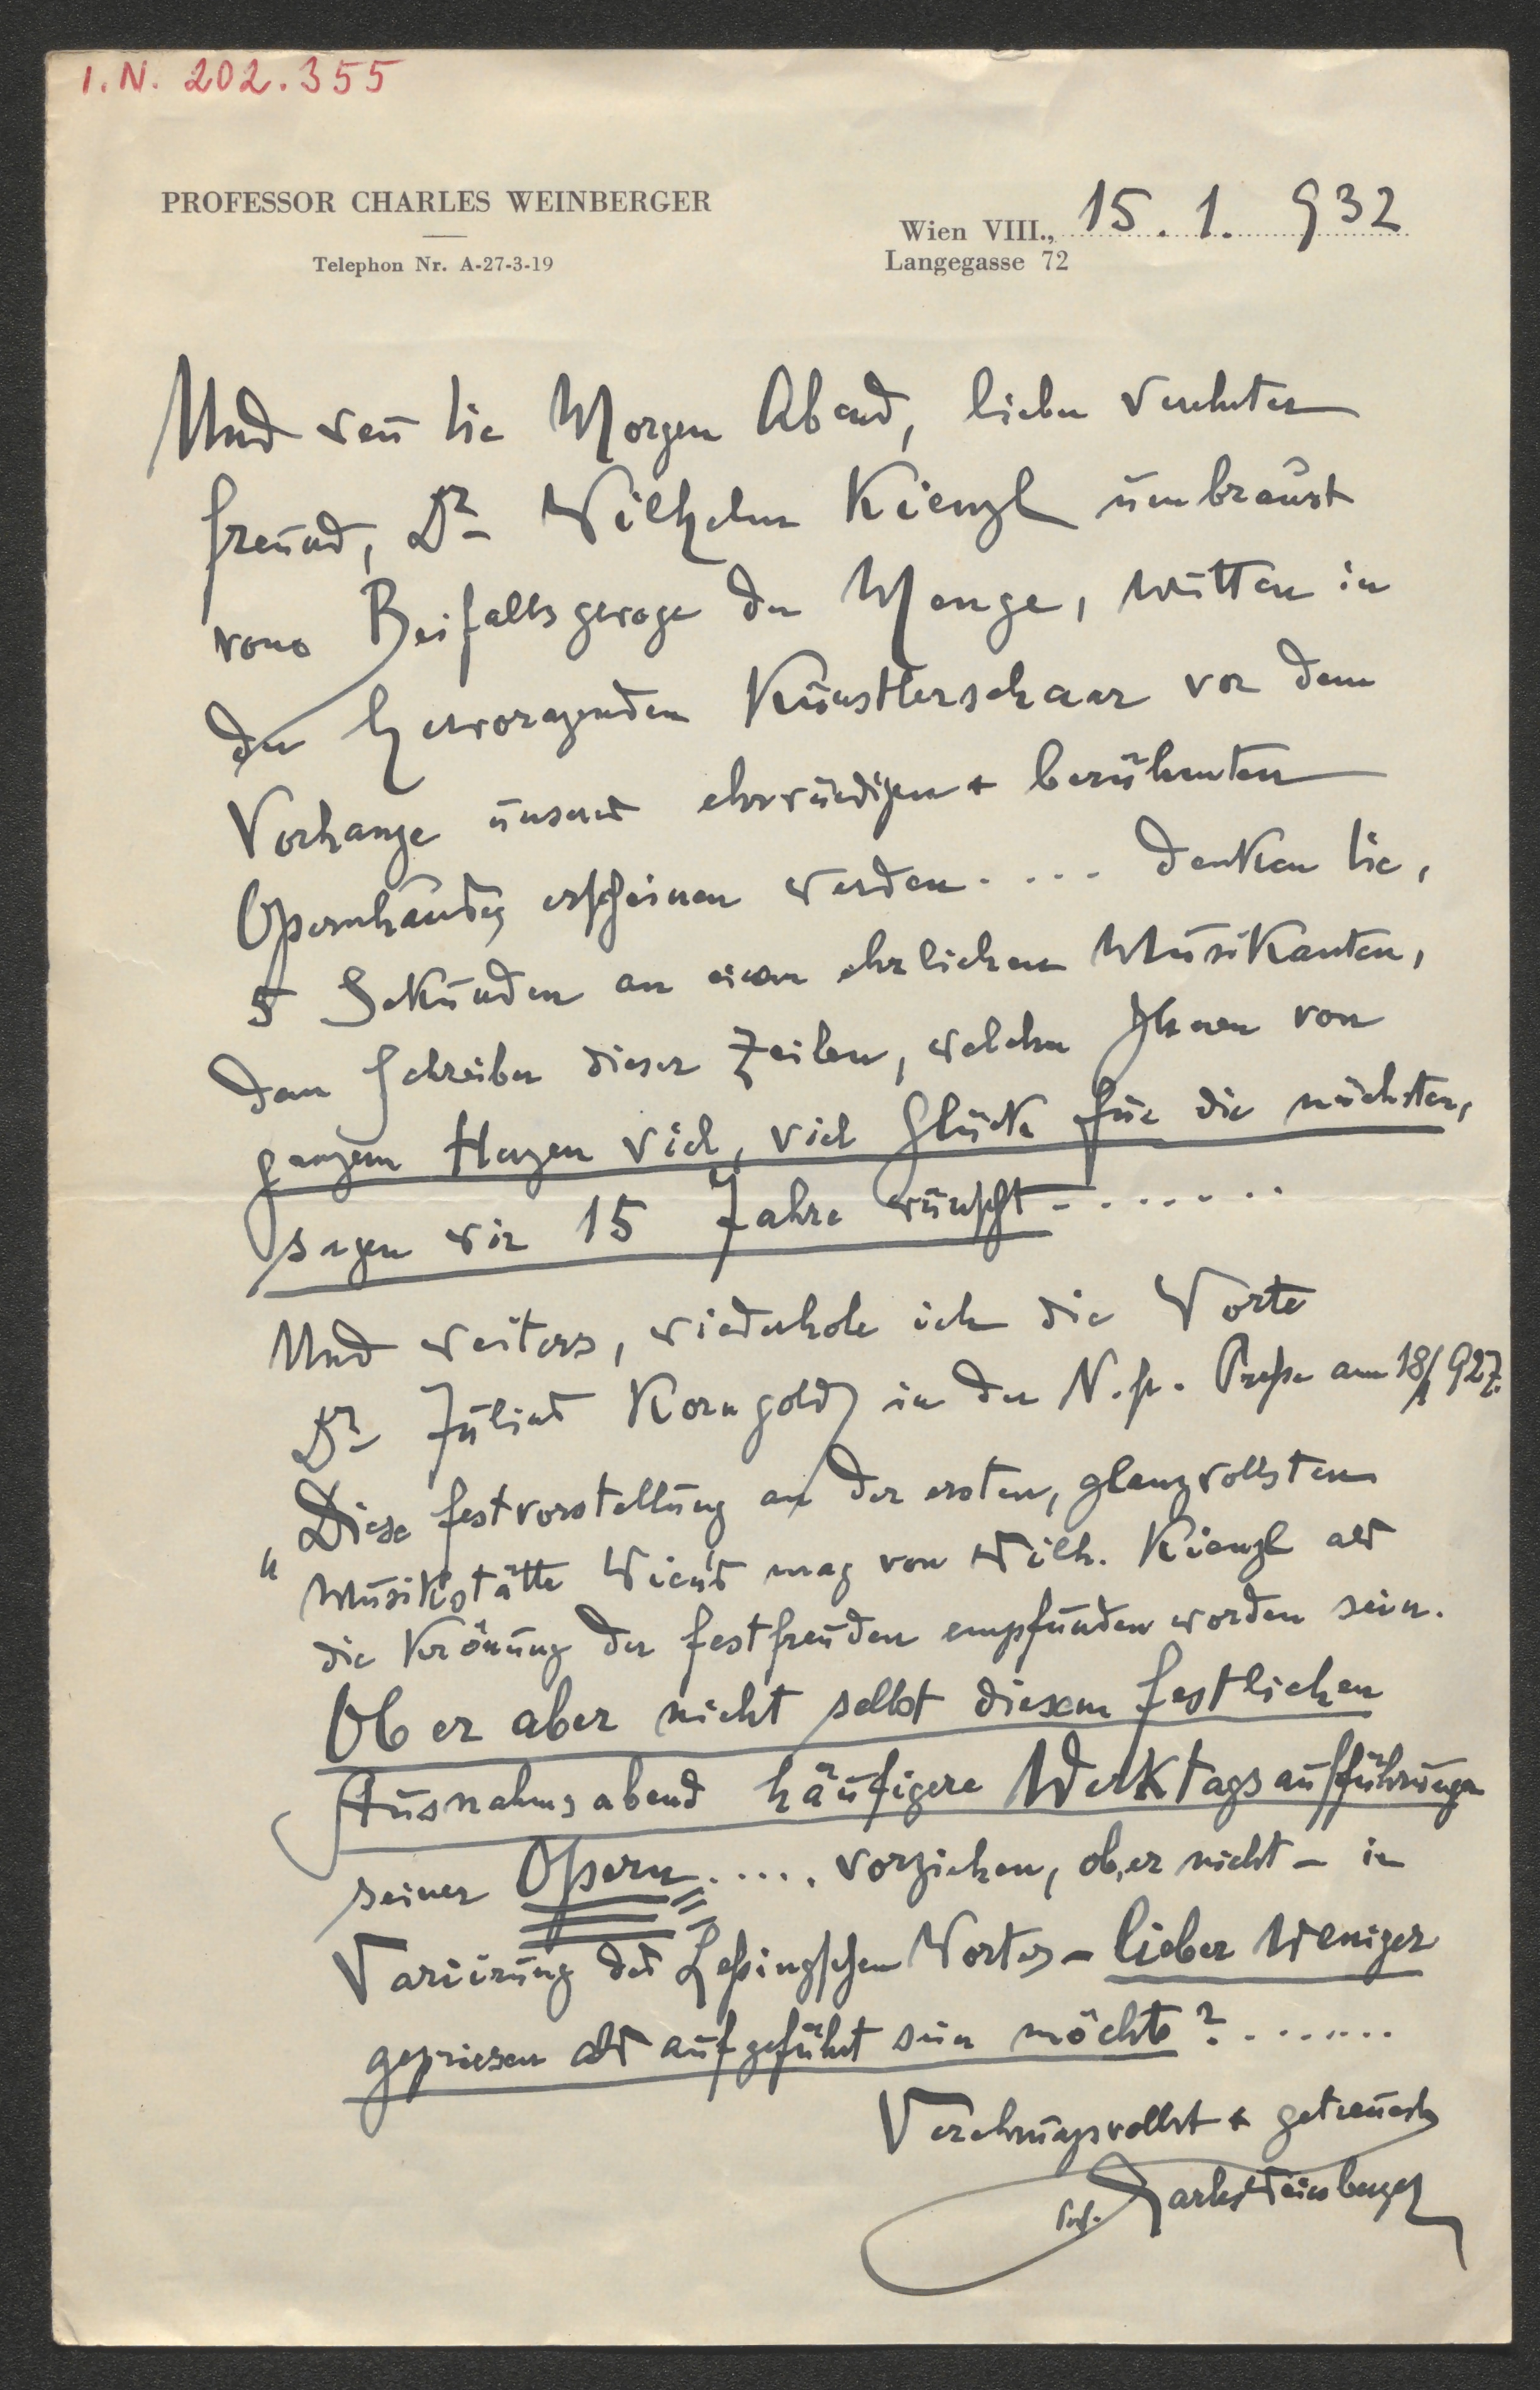 I.N. 202.355
PROFESSOR CHARLES WEINBERGER
Telephon Nr. A-27-3-19
Wien VIII., 15. 1. 932
Langegasse 72
Und wen̄ Sie Morgen Abend, lieber verehrter
Freund, Dr Wilhelm Kienzl umbraust
vom Beifallsgewoge der Menge, mitten in
der hervoragenden Künstlerschaar vor dem
Vorhange unseres ehrwürdigen + berühmten
Opernhauses erscheinen werden .... denken Sie,
5 Sekunden an einen ehrlichen Musikanten,
dem Schreiber dieser Zeilen, welcher Ihnen von
ganzem Herzen viel, viel Glück für die nächsten,
sagen wir 15 Jahre wünscht - ......
Und weiters, wiederhole ich die Worte
Dr Julius Korngolds in der N. fr. Presse am 18/1 927.
„Diese Festvorstellung an der ersten, glanzvollsten
Musikstätte Wien's mag von Wilh. Kienzl als
die Krönung der Festfreuden empfunden worden sein.
Ob er aber nicht selbst diesem festlichen
Ausnahmsabend häufigere Werktagsaufführungen
seiner Opern ..... vorziehen, ob er nicht – in
Variirung des Leßingschen Wortes – lieber weniger
gepriesen als aufgeführt sein möchte? ........
Verehrungsvollst + getreuest
Prof. Charles Weinberger